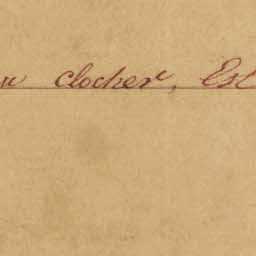 Clocker, Est